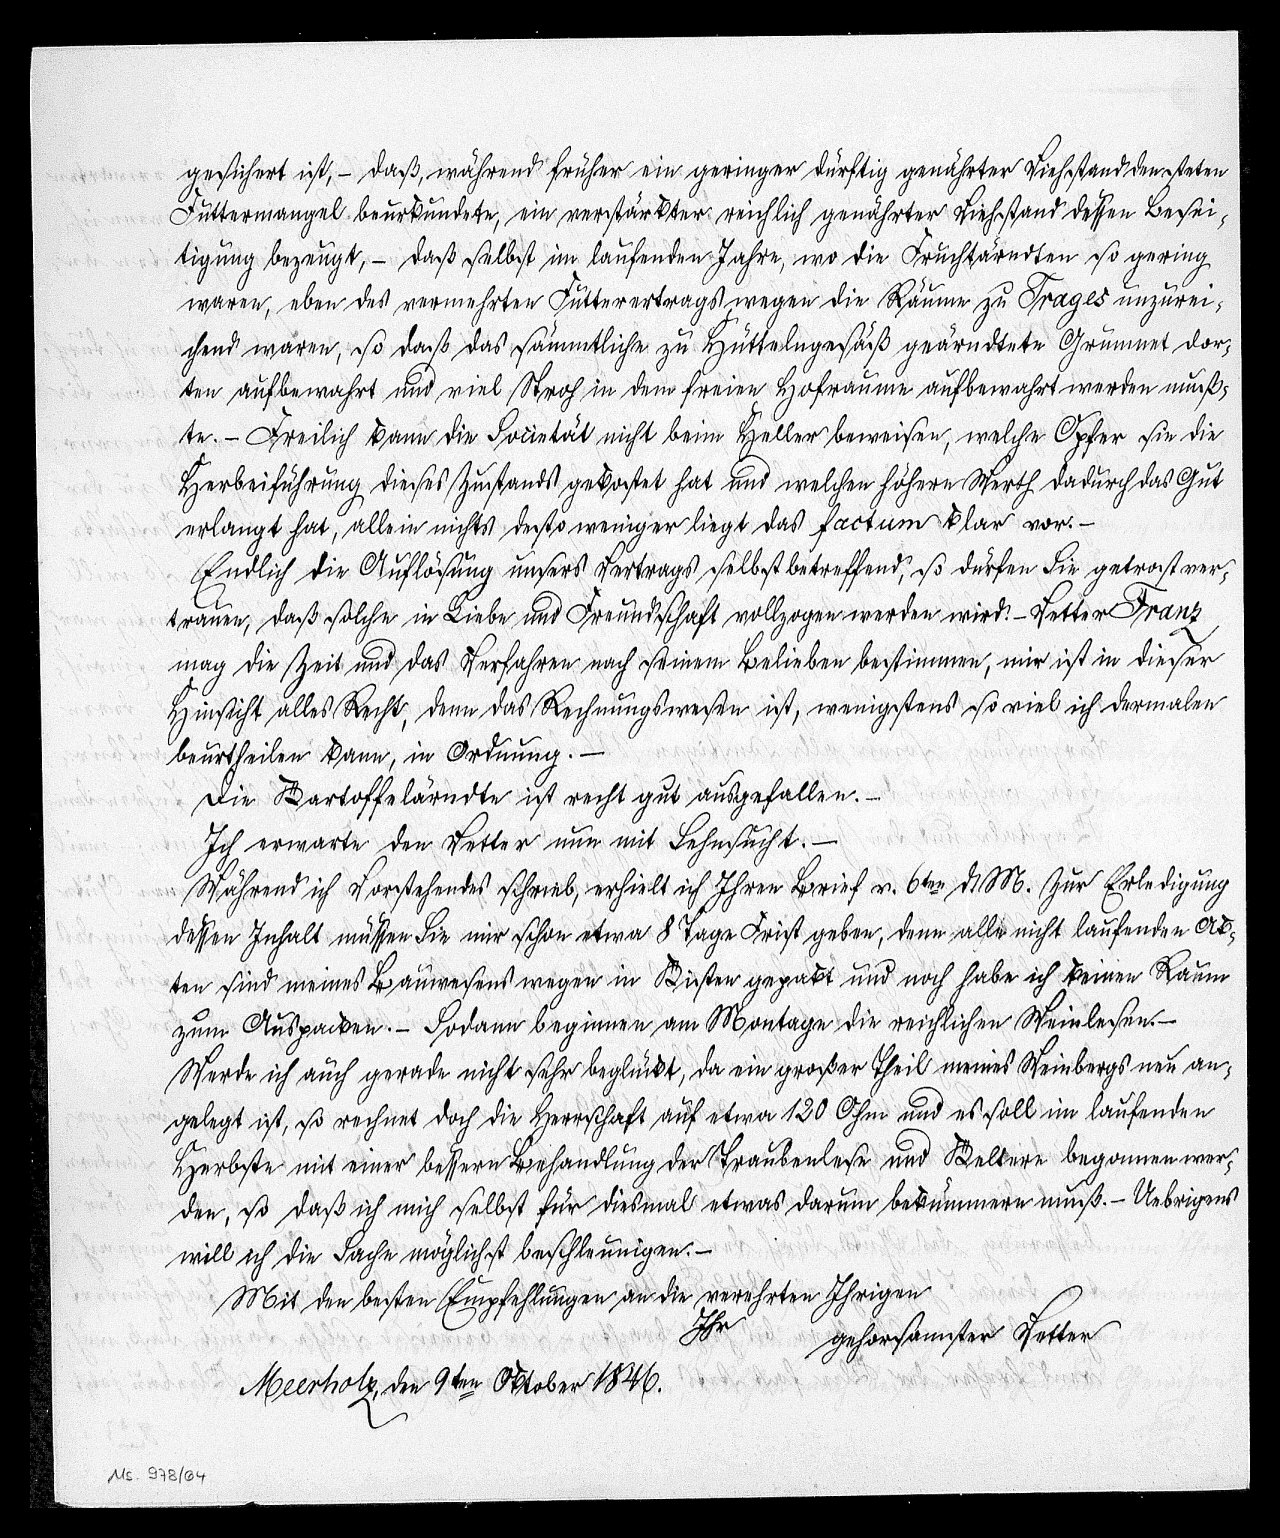 gesichert ist, – daß, während früher ein geringer dürftig genährter Viehstand den steten
Futtermangel beurkundete, ein verstärkter reichlich genährter Viehstand dessen Besei-
tigung bezeugt, – daß selbst im laufenden Jahre, wo die Fruchtärndten so gering
waren, eben des vermehrten Futterertrags wegen die Räume zu Trages unzurei-
chend waren, so daß das sämmtliche zu Hüttelngesäß geärndtete Grummet dor-
ten aufbewahrt und viel Stroh in dem freien Hofraume aufbewahrt werden muß-
te. – Freilich kann die Societät nicht beim Heller beweisen, welche Opfer sie die
Herbeiführung dieses Zustands gekostet hat und welchen höhern Werth dadurch das Gut
erlangt hat, allein nichts desto weniger liegt das factum klar vor. –
Endlich die Auflösung unsers Vertrags selbst betreffend, so dürfen Sie getrost ver-
trauen, daß solche in Liebe und Freundschaft vollzogen werden wird. – Vetter Franz
mag die Zeit und das Verfahren nach seinem Belieben bestimmen, mir ist in dieser
Hinsicht alles Recht, denn das Rechnungswesen ist, wenigstens so viel ich dermalen
beurtheilen kann, in Ordnung. –
Die Kartoffelärndte ist recht gut ausgefallen. –
Ich erwarte den Vetter nun mit Sehnsucht. –
Während ich Vorstehendes schrieb, erhielt ich Ihren Brief v. 6ten d. M. Zur Erledigung
dessen Inhalt müssen Sie mir schon etwa 8 Tage Frist geben, denn alle nicht laufenden Ak-
ten sind meines Bauwesens wegen in Kisten gepakt und noch habe ich keinen Raum
zum Auspacken. – Sodann beginnen am Montage die reichlichen Weinlesen. –
Werde ich auch gerade nicht sehr beglükt, da ein großer Theil meines Weinbergs neu an-
gelegt ist, so rechnet doch die Herrschaft auf etwa 120 Ohm und es soll im laufenden
Herbste mit einer bessern Behandlung der Traubenlese und Keltere begonnen wer-
den, so daß ich mich selbst für diesmal etwas darum bekümmern muß. – Uebrigens
will ich die Sache möglichst beschleunigen. –
Mit den besten Empfehlungen an die verehrten Ihrigen
Ihr
gehorsamster Vetter
Meerholz, den 9ten Oktober 1846.
Ms. 978/64